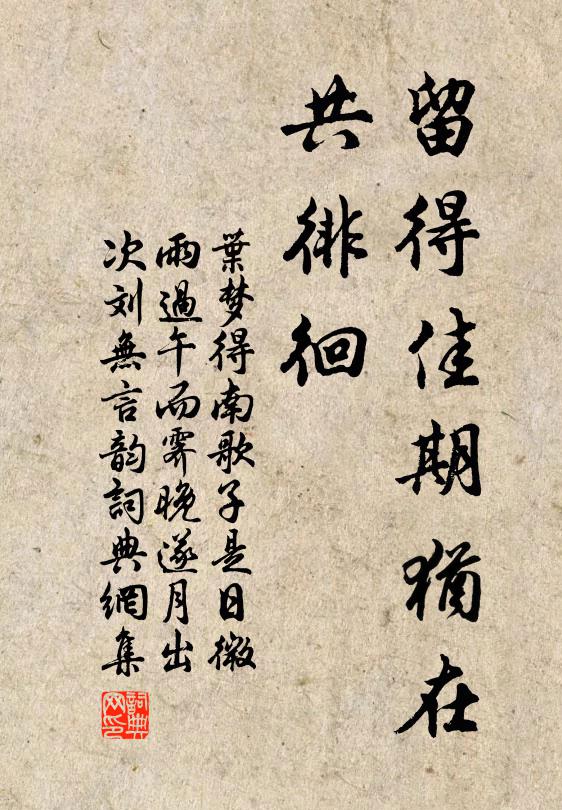 留得佳期猶在
共徘徊
葉梦得南歌子是日微
雨過午而霽晚遂月出
次刘無言韵詞典網集
詞典
网印